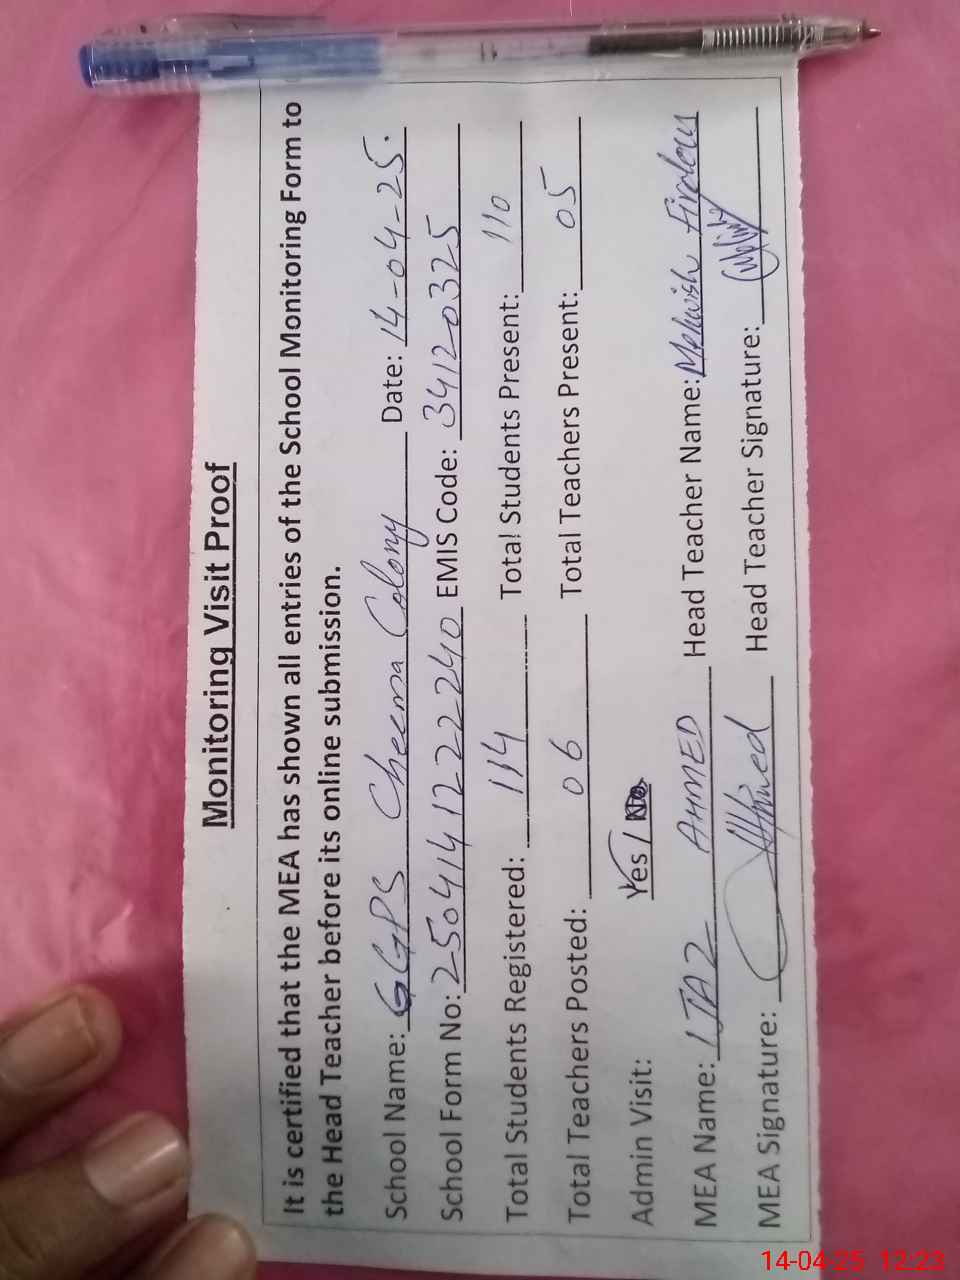 Monitoring Visit Proof
It is certified that the MEA has shown all entries of the School Monitoring Form to
the Head Teacher before its online submission.
School Name: GGPS Cheema Colony Date: 14-04-25.
School Form No: 2504141222240 EMIS Code: 34120325
Total Students Registered: 114 Total Students Present: 110
Total Teachers Posted: 06 Total Teachers Present: 05
Admin Visit: Yes / No
MEA Name: IJAZ AHMED Head Teacher Name: Mehwish Firdous
MEA Signature: Head Teacher Signature:
14-04-25 12:23